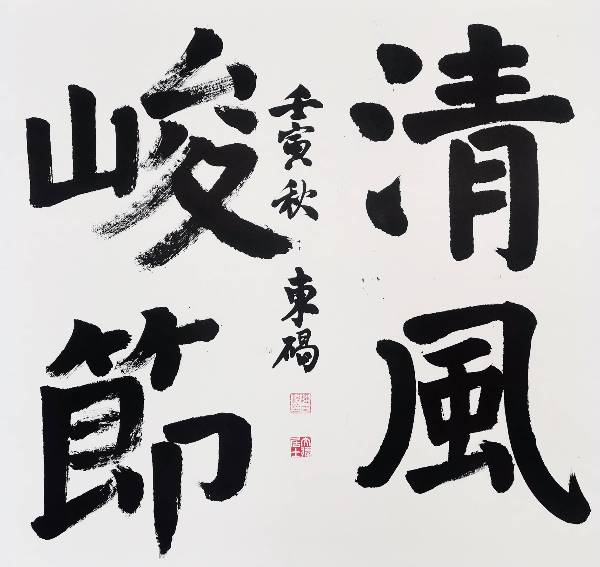 清風
峻節
壬寅秋 東碣